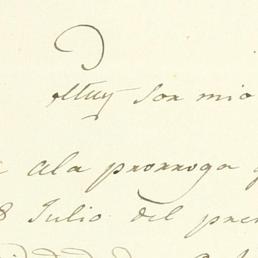 Muy Sor mio
ala prorroga
8 Julio del